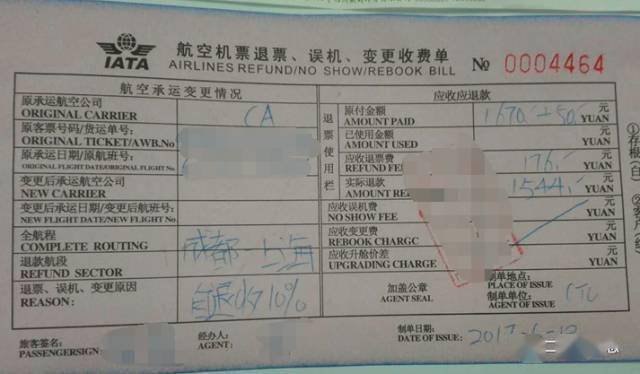 IATA
航空机票退票、误机、变更收费单
AIRLINES REFUND/NO SHOW/REBOOK BILL
№ 0004464
航空承运变更情况
应收应退款
原承运航空公司
ORIGINAL CARRIER
CA
原付金额
AMOUNT PAID
1670.+50.
元
YUAN
原客票号码/货运单号:
ORIGINAL TICKET/AWB.No
退票使用栏
已使用金额
AMOUNT USED
元
YUAN
原承运日期/原航班号:
ORIGINAL FLIGHT DATE/ORIGINAL FLIGHT No
应收退票费
REFUND FEE
176.
元
YUAN
变更后承运航空公司
NEW CARRIER
实际退款
AMOUNT
1544.
元
YUAN
变更后承运日期/变更后航班号:
NEW FLIGHT DATE/NEW FLIGHT No
应收误机费
NO SHOW FEE
元
YUAN
全航程
COMPLETE ROUTING
成都-上海
应收变更费
REBOOK CHARGC
元
YUAN
退款航段
REFUND SECTOR
应收升舱价差
UPGRADING CHARGE
元
YUAN
退票、误机、变更原因
REASON:
自愿 10%
加盖公章
AGENT SEAL
制单地点:
PLACE OF ISSUE
制单单位:
AGENT OF ISSUE
CTU
旅客签名:
PASSENGERSIGN:
经办人:
AGENT:
制单日期:
DATE OF ISSUE:
①存根(白)